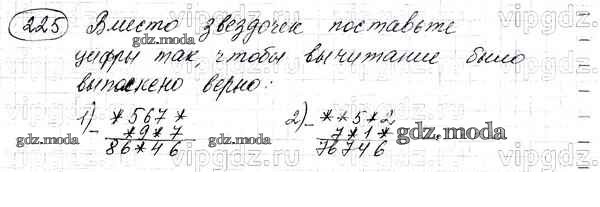 225 Вместо звездочек поставьте
gdz.moda
цифры так, чтобы вычитание было
выполнено верно:
1) - *567*
*9*7
86*46
2) - **5*2
7*1*
76746
gdz.moda
gdz.moda
gdz.moda
gdz.moda
vipgdz.ru
vipgdz.ru
vipgdz.ru
vipgdz.ru